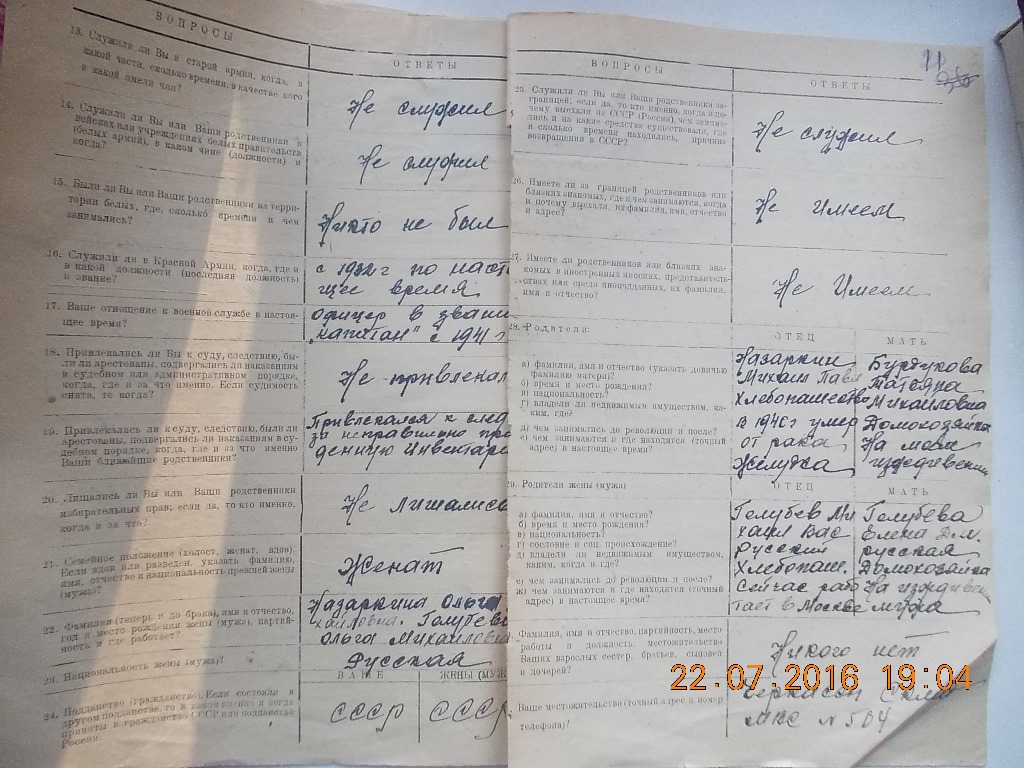 ВОПРОСЫ
ОТВЕТЫ
13. Служили ли Вы в старой армии, когда, в
какой части, сколько времени, в качестве кого
и какой имели чин?
Не служил
14. Служили ли Вы или Ваши родственники в
войсках или учреждениях белых правительств
(белых армий), в каком чине (должности) и
когда?
Не служил
15. Были ли Вы или Ваши родственники на терри-
тории белых, где, сколько времени и чем
занимались?
Никто не был
16. Служили ли в Красной Армии, когда, где и
в какой должности (последняя должность)
и звание?
с 1932 г по наст
щее время
17. Ваше отношение к военной службе в настоя-
щее время?
офицер в звани
„капитан" с 1941 г
18. Привлекались ли Вы к суду, следствию, бы-
ли ли арестованы, подвергались ли наказаниям
в судебном или административном порядке,
когда, где и за что именно. Если судимость
снята, то когда?
Не привлекал
19. Привлекались ли к суду, следствию, были ли
арестованы, подвергались ли наказаниям в су-
дебном порядке, когда, где и за что именно
Ваши ближайшие родственники?
Привлекался к след
за неправильно про
денную инвентари
20. Лишались ли Вы или Ваши родственники
избирательных прав; если да, то кто именно,
когда и за что?
Не лишались
21. Семейное положение (холост, женат, вдов).
Если вдов или разведен, указать фамилию,
имя, отчество и национальность прежней жены
(мужа)?
Женат
22. Фамилия (теперь и до брака), имя и отчество,
год и место рождения жены (мужа), партий-
ность и где работает?
Назаркина Ольга
хайловна. Голубева
Ольга Михайловна
23. Национальность жены (мужа)?
Русская
24. Подданство (гражданство). Если состояли в
другом подданстве, то в каком именно и когда
приняты в гражданство СССР или подданство
России.
ВАШЕ
ЖЕНЫ (МУЖ
СССР
СССР
11
ВОПРОСЫ
ОТВЕТЫ
25. Служили ли Вы или Ваши родственники за-
границей; если да, то кто именно, когда и по-
чему выехали из СССР (России), чем занима-
лись и на какие средства существовали, где
и сколько времени находились, причина
возвращения в СССР?
Не служил
26. Имеете ли за границей родственников или
близких знакомых, где и чем занимаются, когда
и почему выехали, их фамилия, имя, отчество
и адрес?
Не Имеем
27. Имеете ли родственников или близких зна-
комых в иностранных миссиях, представитель-
ствах или среди иноподданных, их фамилия,
имя и отчество?
Не Имеем
28. Родители:
ОТЕЦ
МАТЬ
а) фамилия, имя и отчество (указать девичью
фамилию матери)?
б) время и место рождения?
в) национальность?
г) владели ли недвижимым имуществом, ка-
ким, где?
д) чем занимались до революции и после?
е) чем занимаются и где находятся (точный
адрес) в настоящее время?
Назаркин
Михаил Павл
Хлебопашество
в 1946 г умер
от рака
Желудка
Бурдукова
Татьяна
Михайловна
Домохозяйка
На моем
иждевении
29. Родители жены (мужа)
ОТЕЦ
МАТЬ
а) фамилия, имя и отчество?
б) время и место рождения?
в) национальность?
г) сословие и соц. происхождение?
д) владели ли недвижимым имуществом,
каким, когда и где?
е) чем занимались до революции и после?
ж) чем занимаются и где находятся (точный
адрес) в настоящее время?
Голубев Ми
хаил Вас
Русский
Хлебопаш.
Сейчас рабо
тает в Москве
Голубева
Елена
русская
Домохозяйка
На иждивен
мужа
Фамилия, имя и отчество, партийность, место
работы и должность, местожительство
Ваших взрослых сестер, братьев, сыновей
и дочерей?
Никого нет
Ваше местожительство (точный адрес и номер
телефона)?
МКС N 504
22.07.2016 19:04